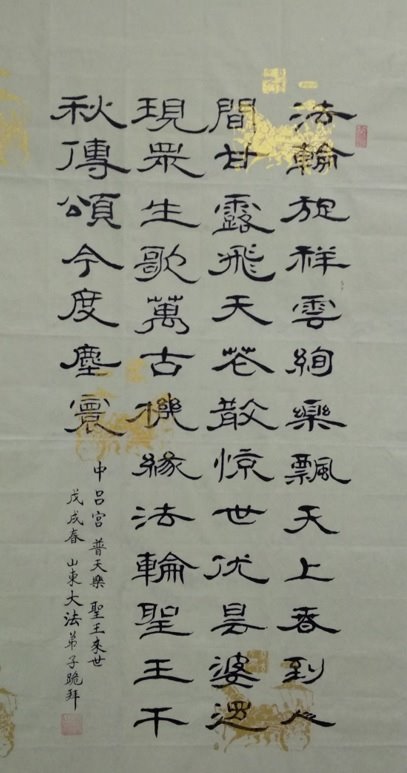 法輪旋祥雲絢樂飄天上春到人
間甘露飛天花散惊世优昙婆逻
現眾生歌萬古機緣法輪聖王千
秋傳頌今度塵寰
中呂宮 普天樂 聖王來世
戊戌春 山東大法弟子跪拜